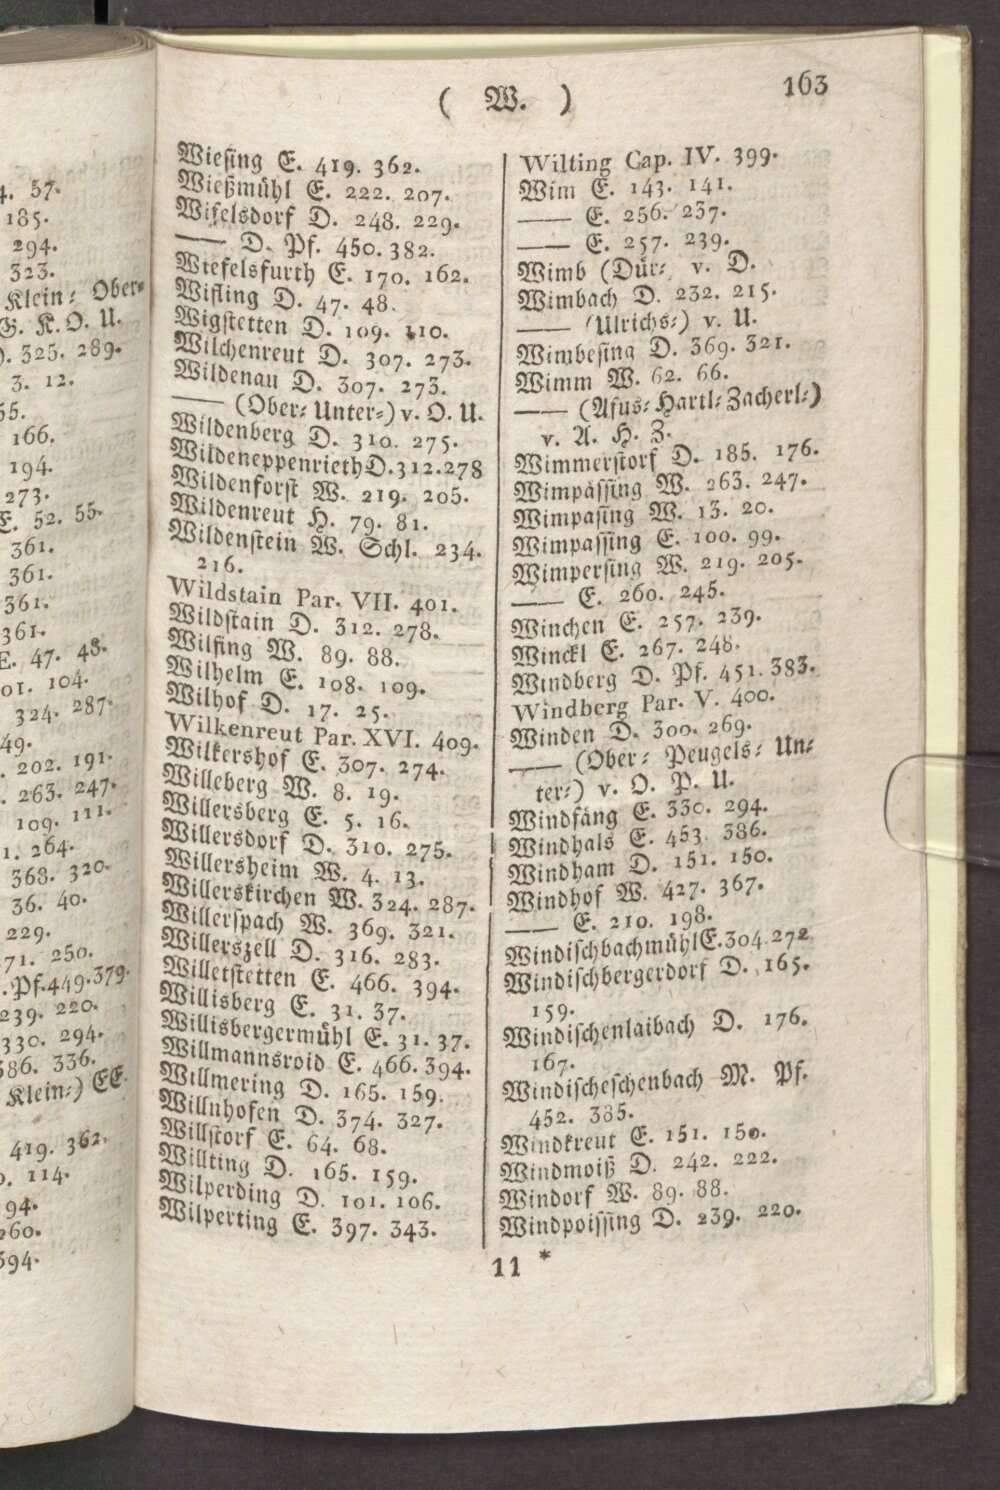 4. 57.
185.
294.
323.
Klein⸗ Ober⸗
G. K. O. U.
325. 289.
3. 12.
55.
166.
194.
273.
E. 52. 55.
361.
361.
361.
361.
E. 47. 48.
01. 104.
324. 287.
49.
202. 191.
263. 247.
109. 111.
1. 264.
368. 320.
36. 40.
229.
71. 250.
Pf. 449. 379.
239. 220.
330. 294.
386. 336.
Klein⸗) EE.
419. 362.
114.
94.
260.
394.
( W. ) 163
Wieſing E. 419. 362.
Wießmühl E. 222. 207.
Wifelsdorf D. 248. 229.
—— D. Pf. 450. 382.
Wiefelsfurth E. 170. 162.
Wifling D. 47. 48.
Wigſtetten D. 109. 110.
Wilchenreut D. 307. 273.
Wildenau D. 307. 273.
—— (Ober⸗ Unter⸗) v. O. U.
Wildenberg D. 310. 275.
Wildeneppenrieth D. 312. 278
Wildenforſt W. 219. 205.
Wildenreut H. 79. 81.
Wildenſtein W. Schl. 234.
216.
Wildstain Par. VII. 401.
Wildſtain D. 312. 278.
Wilfing W. 89. 88.
Wilhelm E. 108. 109.
Wilhof D. 17. 25.
Wilkenreut Par. XVI. 409.
Wilkershof E. 307. 274.
Willeberg W. 8. 19.
Willersberg E. 5. 16.
Willersdorf D. 310. 275.
Willersheim W. 4. 13.
Willerskirchen W. 324. 287.
Willerſpach W. 369. 321.
Willerszell D. 316. 283.
Willetſtetten E. 466. 394.
Willisberg E. 31. 37.
Willisbergermühl E. 31. 37.
Willmannsroid E. 466. 394.
Willmering D. 165. 159.
Willnhofen D. 374. 327.
Willſtorf E. 64. 68.
Willting D. 165. 159.
Wilperding D. 101. 106.
Wilperting E. 397. 343.
Wilting Cap. IV. 399.
Wim E. 143. 141.
—— E. 256. 237.
—— E. 257. 239.
Wimb (Dür⸗ v. D.
Wimbach D. 232. 215.
—— (Ulrichs⸗) v. U.
Wimbeſing D. 369. 321.
Wimm W. 62. 66.
—— (Afus⸗ Hartl⸗ Zacherl⸗)
v. A. H. Z.
Wimmerſtorf D. 185. 176.
Wimpäſſing W. 263. 247.
Wimpaſing W. 13. 20.
Wimpaſſing E. 100. 99.
Wimperſing W. 219. 205.
—— E. 260. 245.
Winchen E. 257. 239.
Winckl E. 267. 248.
Windberg D. Pf. 451. 383.
Windberg Par. V. 400.
Winden D. 300. 269.
—— (Ober⸗ Peugels⸗ Un⸗
ter⸗) v. O. P. U.
Windfäng E. 330. 294.
Windhals E. 453. 386.
Windham D. 151. 150.
Windhof W. 427. 367.
—— E. 210. 198.
Windiſchbachmühl E. 304. 272
Windiſchbergerdorf D. 165.
159.
Windiſchenlaibach D. 176.
167.
Windiſcheſchenbach M. Pf.
452. 385.
Windkreut E. 151. 150.
Windmoiß D. 242. 222.
Windorf W. 89. 88.
Windpoiſſing D. 239. 220.
11 *